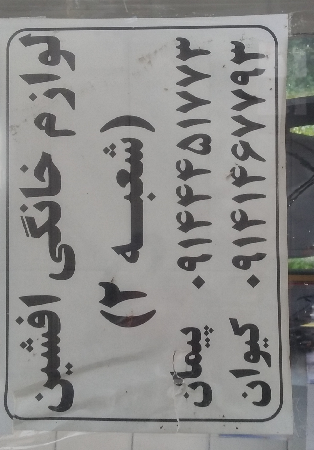 لوازم خانگی افشین
(شعبه ۲)
پیمان ۰۹۱۴۴۴۵۱۷۷۳
کیوان ۰۹۱۴۱۴۶۷۷۹۳